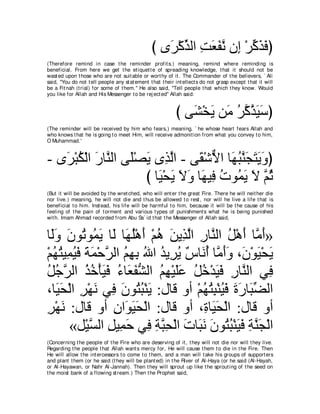 ﴿ فَذَكِّرْ إِن نَّفَعَتِ الذِّكْرَى ﴾
(Therefore remind in case the reminder profits.) meaning, remind where reminding is
beneficial. From here we get the etiquette of spreading knowledge, that it should not be
wasted upon those who are not suitable or worthy of it. The Commander of the believers, `Ali
said, "You do not tell people any statement that their intellects do not grasp except that it will
be a Fitnah (trial) for some of them.'' He also said, "Tell people that which they know. Would
you like for Allah and His Messenger to be rejected'' Allah said:
﴿ سَيَذَّكَّرُ مَن يَخْشَى ﴾
(The reminder will be received by him who fears,) meaning, `he whose heart fears Allah and
who knows that he is going to meet Him, will receive admonition from what you convey to him,
O Muhammad.'
﴿وَيَتَجَنَّبُهَا الاٌّشْقَى - الَّذِى يَصْلَى النَّارَ الْكُبْرَى -
ثُمَّ لاَ يَمُوتُ فِيهَا وَلاَ يَحْيَا ﴾
(But it will be avoided by the wretched, who will enter the great Fire. There he will neither die
nor live.) meaning, he will not die and thus be allowed to rest, nor will he live a life that is
beneficial to him. Instead, his life will be harmful to him, because it will be the cause of his
feeling of the pain of torment and various types of punishments what he is being punished
with. Imam Ahmad recorded from Abu Sa`id that the Messenger of Allah said,
«أَمَّا أَهْلُ النَّارِ الَّذِينَ هُمْ أَهْلُهَا لَا يَمُوتُونَ وَلَا
يَحْيَوْنَ، وَأَمَّا أُنَاسٌ يُرِيدُ اللهُ بِهِمُ الرَّحْمَةَ فَيُمِيتُهُمْ
فِي النَّارِ فَيَدْخُلُ عَلَيْهِمُ الشُّفَعَاءُ فَيَأْخُذُ الرَّجُلُ
الضِّبَارَةَ فَيُنْبِتُهُمْ أَوْ قَالَ: يَنْبُتُونَ فِي نَهْرِ الْحَيَاءِ،
أَوْ قَالَ: الْحَيَاةِ، أَوْ قَالَ: الْحَيَوَانِ أَوْ قَالَ: نَهْرِ
الْجَنَّةِ فَيَنْبُتُونَ نَبَاتَ الْحِبَّةِ فِي حَمِيلِ السَّيْلِ»
(Concerning the people of the Fire who are deserving of it, they will not die nor will they live.
Regarding the people that Allah wants mercy for, He will cause them to die in the Fire. Then
He will allow the intercessors to come to them, and a man will take his groups of supporters
and plant them (or he said (they will be planted) in the River of Al-Haya (or he said (Al-Hayah,
or Al-Hayawan, or Nahr Al-Jannah). Then they will sprout up like the sprouting of the seed on
the moist bank of a flowing stream.) Then the Prophet said,